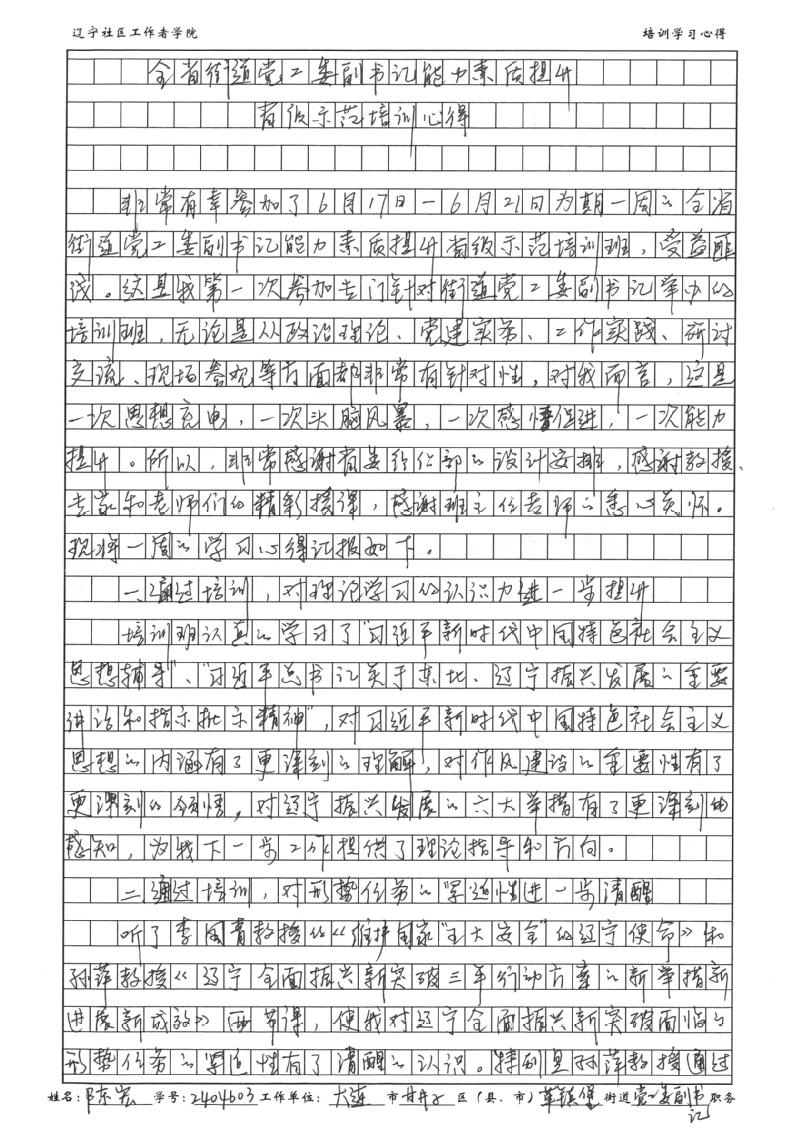 辽宁社区工作者学院 培训学习心得
全省街道党工委副书记能力素质提升
省级示范培训心得
非常有幸参加了6月17日—6月21日为期一周的全省
街道党工委副书记能力素质提升省级示范培训班，受益匪
浅。这是我第一次参加专门针对街道党工委副书记举办的
培训班，无论是从政治理论、党建实务、工作实践、研讨
交流、现场参观等方面都非常有针对性，对我而言，这是
一次思想充电，一次头脑风暴，一次感情促进，一次能力
提升。所以，非常感谢省委组织部的设计安排，感谢教授、
专家和老师们的精彩授课，感谢班主任老师的悉心关怀。
现将一周的学习心得汇报如下。
一、通过培训，对理论学习的认识力进一步提升
培训班认真的学习了“习近平新时代中国特色社会主义
思想辅导”、“习近平总书记关于东北、辽宁振兴发展的重要
讲话和指示批示精神”，对习近平新时代中国特色社会主义
思想的内涵有了更深刻的理解，对作风建设的重要性有了
更深刻的领悟，对辽宁振兴发展的六大举措有了更深刻的
感知，为我下一步工作提供了理论指导和方向。
二、通过培训，对形势任务的紧迫性进一步清醒
听了李国青教授的《维护国家“五大安全”的辽宁使命》和
孙萍教授《辽宁全面振兴新突破三年行动方案的新举措新
进展新成效》两节课，使我对辽宁全面振兴新突破面临的
形势任务的紧迫性有了清醒的认识。特别是孙萍教授通过
姓名：陈宏 学号：2404603 工作单位：大连 市 甘井子 区（县、市）革镇堡 街道 党工委副书记 职务